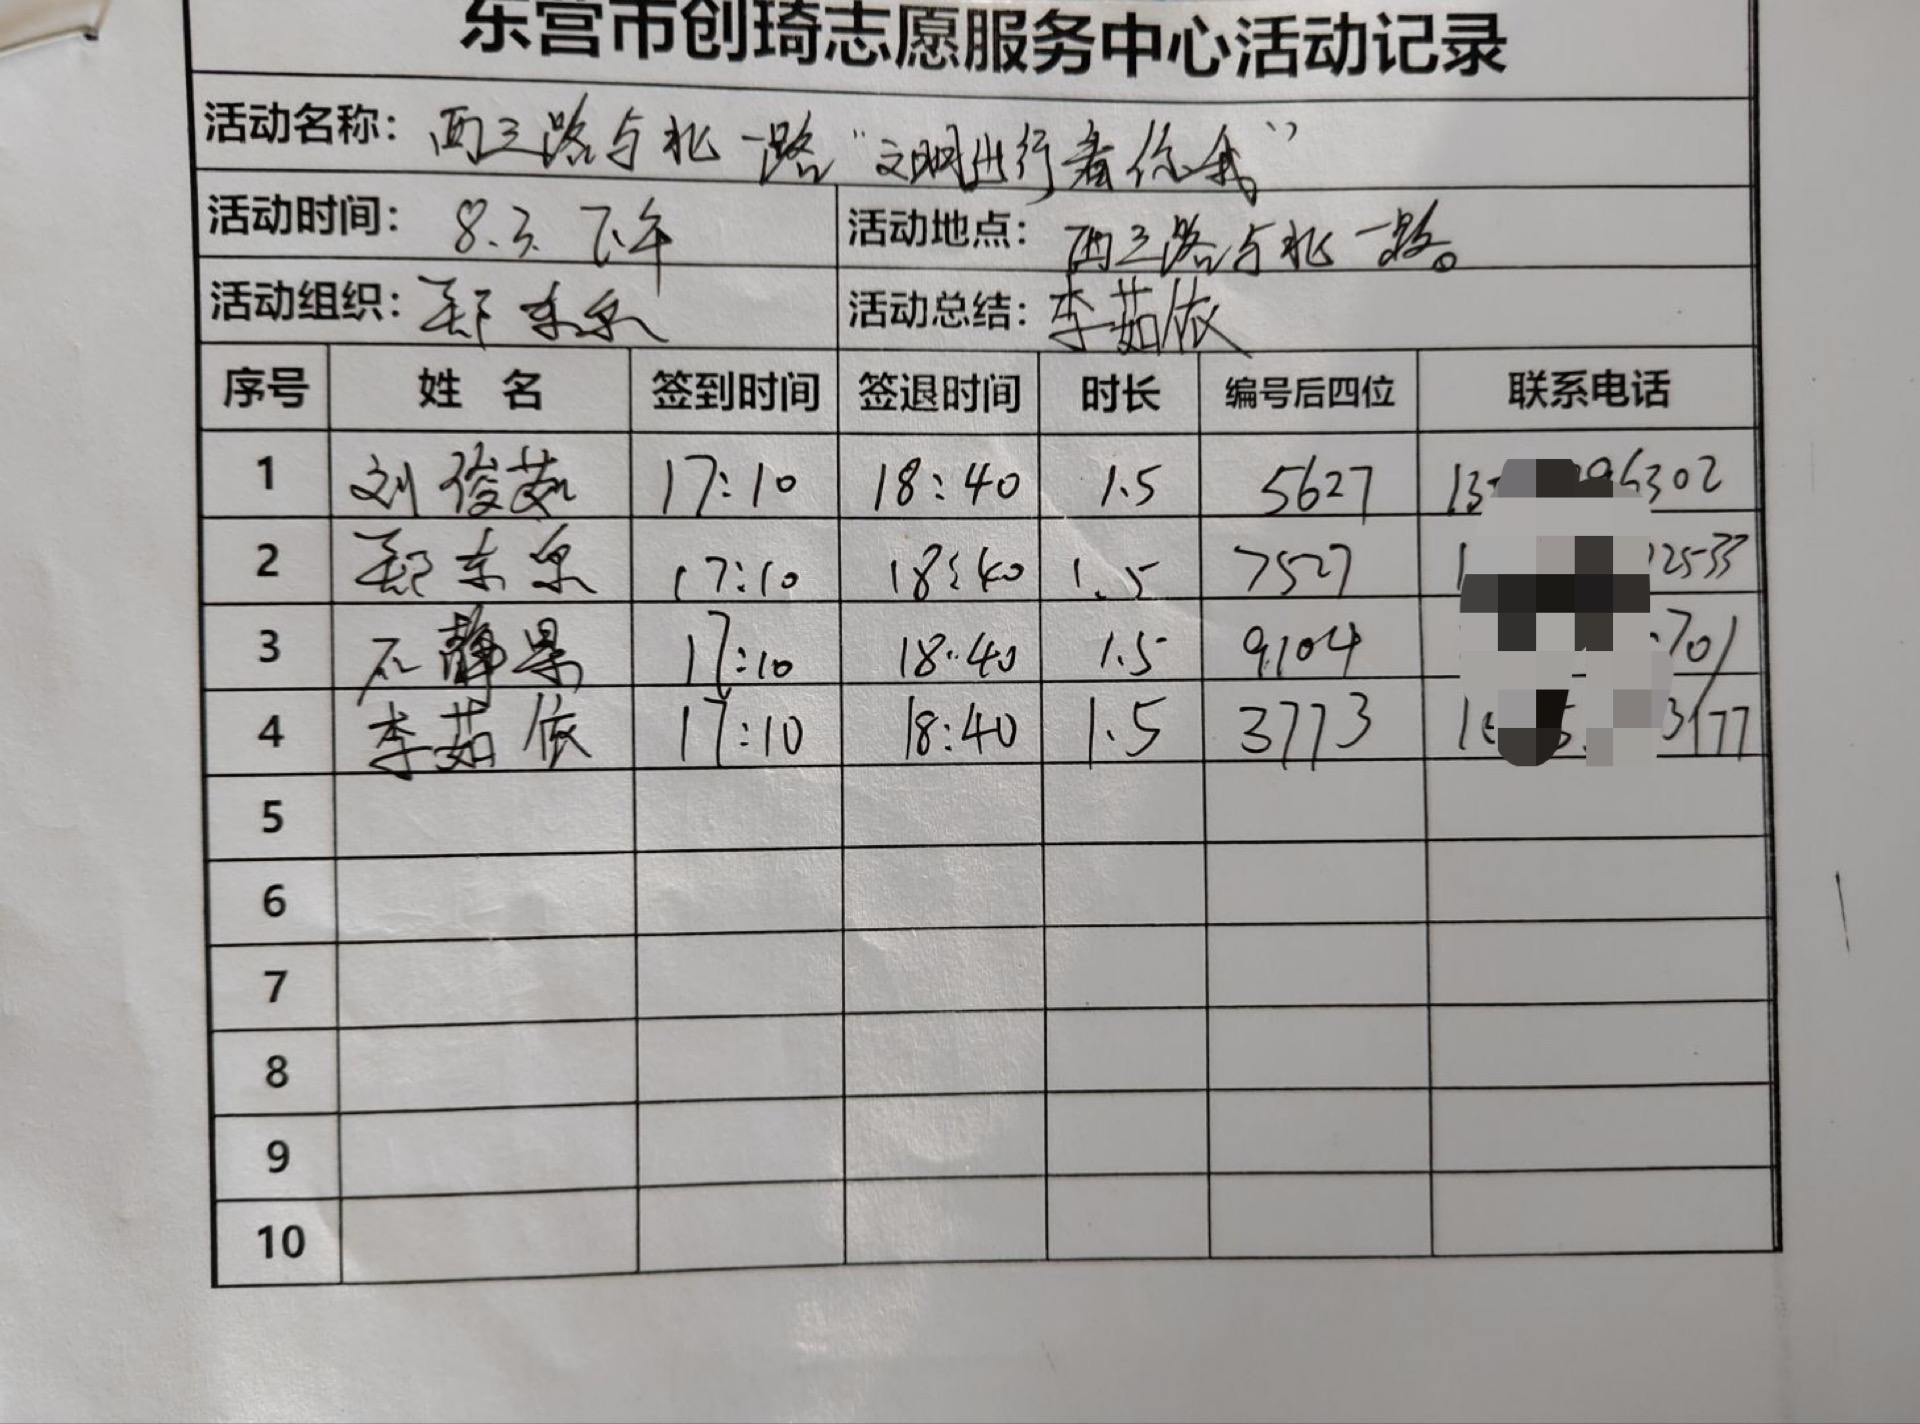 东营市创琦志愿服务中心活动记录
活动名称：西三路与北一路“文明出行看你我”
活动时间：8.3.下午 活动地点：西三路与北一路。
活动组织：郑東泉 活动总结：李茹依
序号 姓名 签到时间 签退时间 时长 编号后四位 联系电话
1 刘俊茹 17:10 18:40 1.5 5627 6302
2 郑東泉 17:10 18:40 1.5 7527 2533
3 石静 17:10 18:40 1.5 9104 701
4 李茹依 17:10 18:40 1.5 3773 3177
5
6
7
8
9
10